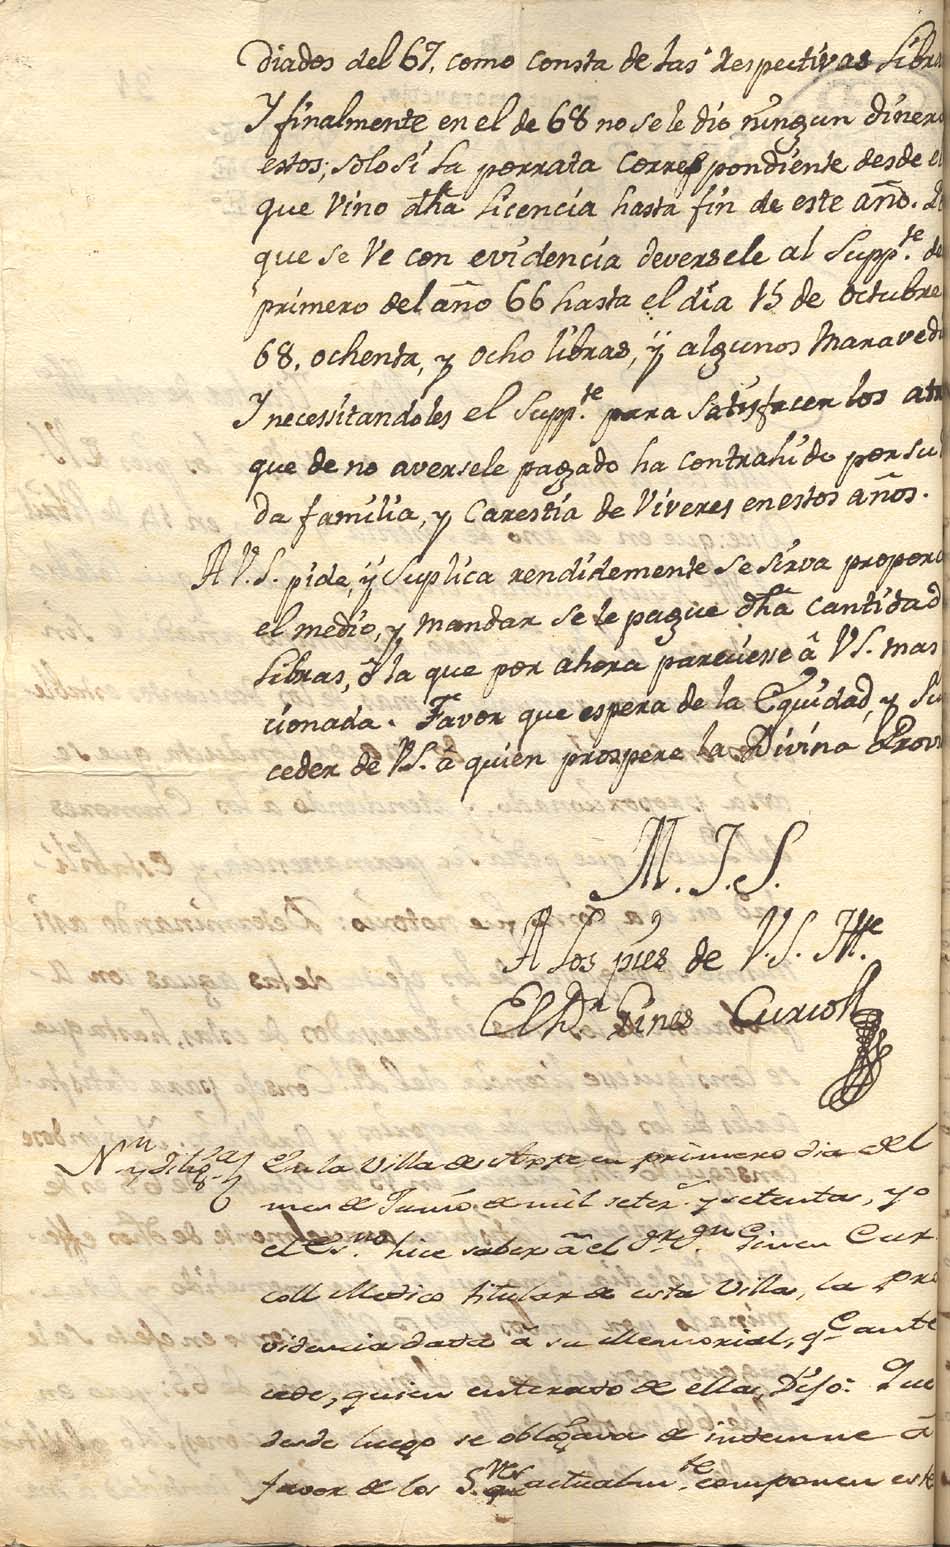 diados del 67, como consta de las respectivas libra
Y finalmente en el de 68 no se le dio ningun dinero
estos; solo si la porrata correspondiente desde el
que vino dha licencia hasta fin de este año.
que se ve con evidencia deversele al Suppte. de
primero del año 66 hasta el dia 15 de octubre
68. ochenta, y ocho libras, y algunos maravedi
Y necessitandoles el Suppte. para satisfacer los atr
que de no aversele pagado ha contrahido por su
da familia, y carestia de viveres en estos años.
A V.S. pide, y suplica rendidemente se sirva proporc
el medio, y mandar se le pague dha cantidad
libras, ô la que por ahora pareciesse â VS. mas
cionada. Favor que espera de la Equidad, y
ceder de VS. â quien prospere la Divina Provi
M. I. S.
A los pies de V.S. Itte.
El Dr. Gines Curcoll
Nn. y dilig.a
En la Villa de Aspe en primero dia del
mes de Junio de mil seter.s y setenta, yo
el Es.no hice saber â el Dr. Dn. Gines Cur-
coll Medico titular de esta Villa, la pro
videncia data â su Memorial, q.e ante
cede, quien enterado de ella, Dijo: Que
desde luego se obligava de indemne â
favor de los S.res que actualm.te componen este